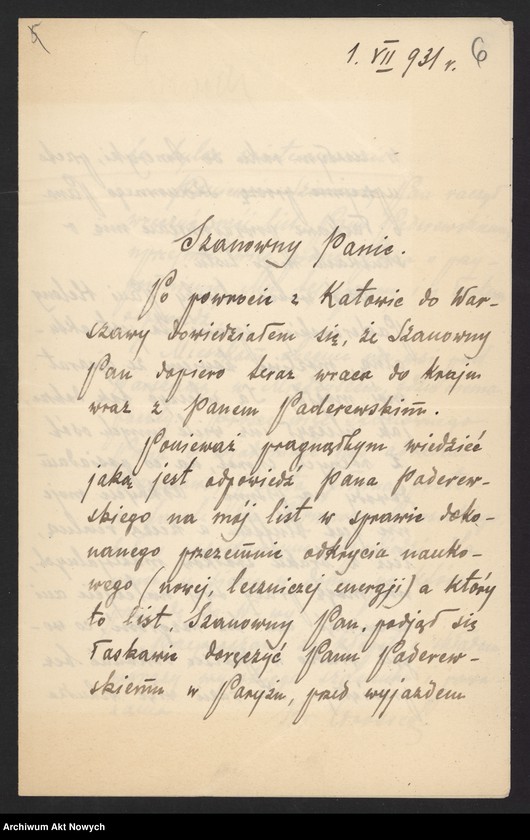 5
1. VII 931 r. 6
Szanowny Panie.
Po powrocie z Katowic do War-
szawy dowiedziałem się, że Szanowny
Pan dopiero teraz wraca do kraju
wraz z Panem Paderewskim.
Ponieważ pragnąłbym wiedzieć
jaką jest odpowiedź Pana Paderew-
skiego na mój list w sprawie doko-
nanego przezemnie odkrycia nauko-
wego (nowej, leczniczej energji) a który
to list, Szanowny Pan, podjął się
łaskawie doręczyć Panu Paderew-
skiemu w Paryżu, przed wyjazdem
Archiwum Akt Nowych